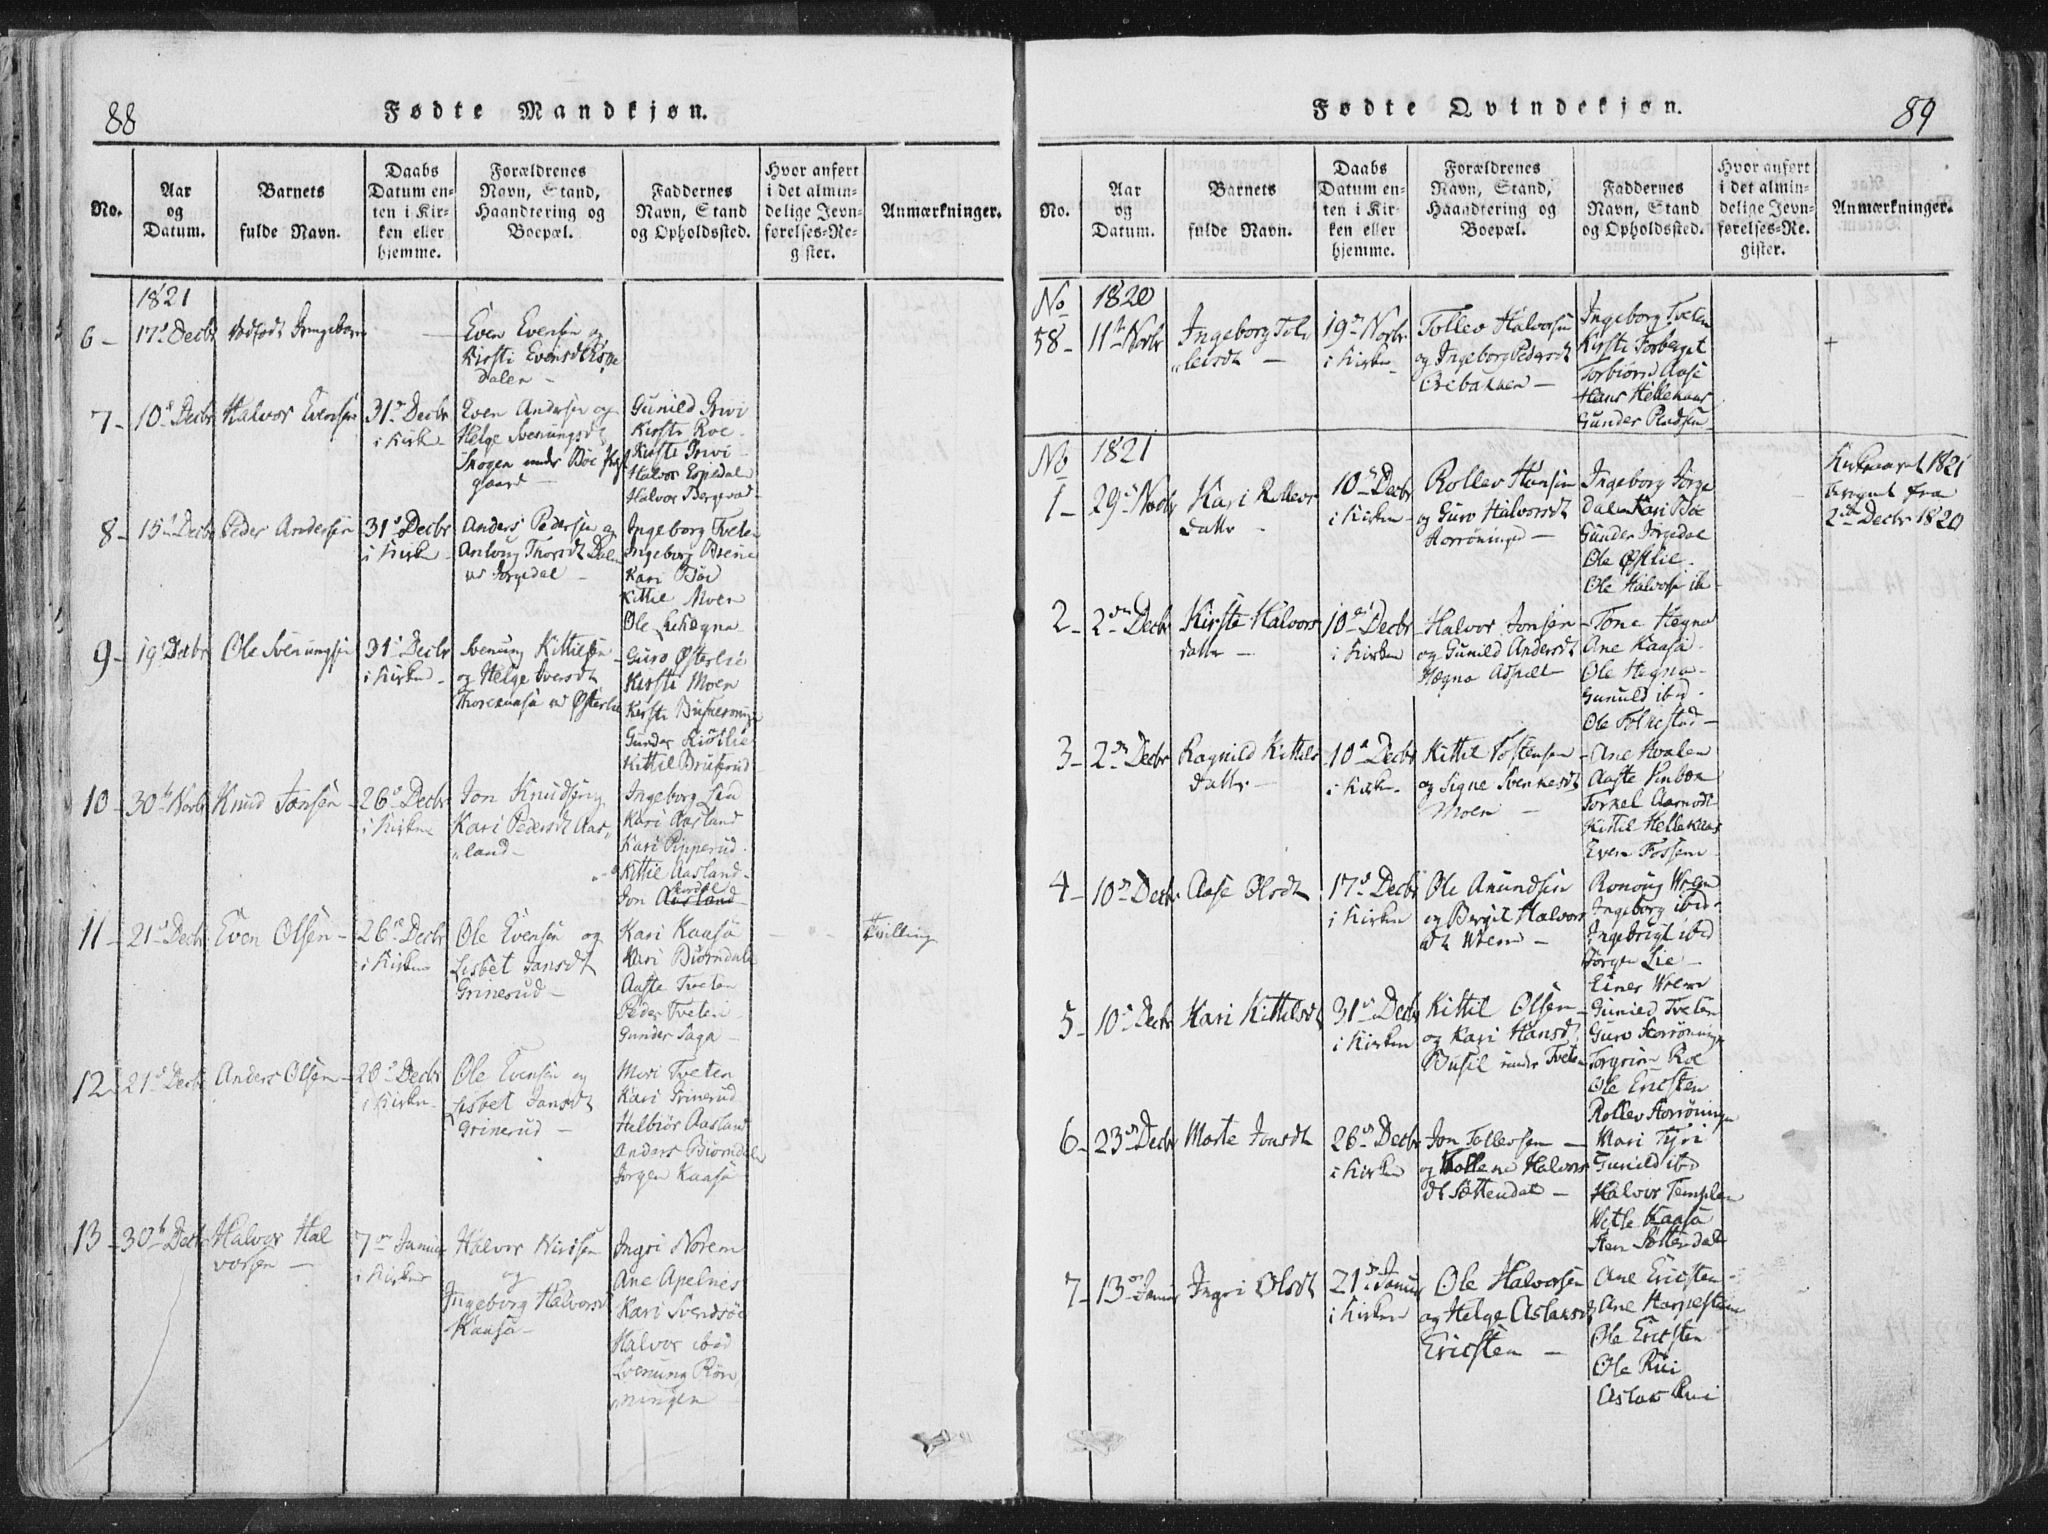 88
Fødte Mandkjøn.
No.
Aar
og
Datum.
Barnets
fulde Navn.
Daabs
Datum en-
ten i Kir-
ken eller
hjemme.
Forældrenes
Navn, Stand,
Haandtering og
Boepæl.
Faddernes
Navn, Stand
og Opholdssted.
Hvor anført
i det almin-
delige Jevn-
førelses-Re-
gister.
Anmærkninger.
1821
6-
17 Decbr
Even Evensen og
Kirsti Evensdt
Dalen -
7-
10 Decbr
Halvor Evensen
31 Decbr
i Kirken
Even Andersen og
Helge Svenungsdt
Skogen under Boe
gaard -
Gunild Grivi
Kirsti Roe
Kirsti Grivi
Halvor Espedalen
Halvor Bergevad
8-
15 Decbr
Peder Andersen
31 Decbr
i Kirken
Anders Pedersen og
Anloug Thorsdt Dalen
Jørgedal -
Ingeborg Tveten
Ingeborg
Kari Boe
Kittil Moen
Ole
9-
19 Decbr
Ole Svenungsen
31 Decbr
i Kirken
Svenung Kittilsen
og Helge Iversdt
Østerlie
Guro Østerlie
Kirsti Moen
Kirsti
Gunder
Kittil
10-
30 Novbr
Knud Jonsen
26 Decbr
i Kirken
Jon Knudsen
Kari Pedersdt Aas
land -
Ingeborg Lia
Kari Aasland
Kari Pipperud
Kittil Aasland
Jon
11-
21 Decbr
Even Olsen -
26 Decbr
i Kirken
Ole Evensen og
Lisbet Jansdt
Grinerud -
Kari Kaasa
Kari Biørndalen
Aaste Tveten
Peder Tveten
Gunder Saga
Tvilling
12
21 Decbr
Anders Olsen -
26 Decbr
i Kirken
Ole Evensen og
Lisbet Jansdt
Grinerud -
Mari Tveten
Kari Grinerud
Helbiør Aasland
Anders Biørndalen
Jørgen Kaasa
13
30 Decbr
Halvor Hal
vorsen -
7 Januar
i Kirken
Halvor
og
Ingeborg Halvorsdt
Kaasa -
Ingri Norem
Ane Apelnes
Kari Svendsøe
Halvor ibid
Svenung Røn
ningen
89
Fødte Qvindekjøn.
No.
Aar
og
Datum.
Barnets
fulde Navn.
Daabs
Datum en-
ten i Kir-
ken eller
hjemme.
Forældrenes
Navn, Stand,
Haandtering og
Boepæl.
Faddernes
Navn, Stand
og Opholdssted.
Hvor anført
i det almin-
delige Jevn-
førelses-Re-
gister.
Anmærkninger.
No 1820
58-
11 Novbr
Ingeborg Tol
levsdt -
19 Novbr
i Kirken
Tollev Halvorsen
og Ingeborg Pedersdt
Ingeborg Tveten
Kirsti Forberget
Torbiørn Aase
Hans Hellekaas
Gunder Pladsen
+
No 1821
1-
29 Novbr
Kari Rollevs
datter -
10 Decbr
i Kirken -
Rollev Hansen
og Guro Halvorsdt
Storrøninged -
Ingeborg Jørge
dalen Kari Boe
Gunder Jørgedal
Ole Østlie
Ole Halvorsen ib -
Kirkeaaret 1821
beregnet fra
2den Decbr 1820
2-
2den Decbr
Kirste Halvors
datter -
10 Decbr
i Kirken
Halvor Jonsen
og Gunild Andersdt
Hægna
Tone Hegna
Ane Kaasa
Ole Hegna
Gunild ibid
Ole Folkestad -
3-
2den Decbr
Ragnild Kittils
datter -
10 Decbr
i Kirken
Kittil Tostensen
og Signe Svenkesdt
Moen -
Ane Hvalen
Aaste
Torkel
Kittil Hellekaas
Even Fossem
4-
10 Decbr
Aase Olsdt
17 Decbr
i Kirken
Ole Amundsen
og Bergit Halvors
dt Worn -
Ronoug Worn
Ingeborg ibid
Ingebrigt ibid
Jørgen Lie -
Einer Worn
5-
10 Decbr
Kari Kittilsdt
31 Decbr
i Kirken
Kittil Olsen
og Kari Hansdt
under Tveten
Gunild Tveten
Guro Storrøningen
Torgrim Roe
Ole Ericsten
Rollev Storrøningen
6-
23 Decbr
Marte Jonsdt
26 Decbr
i Kirken
Jon Tollevsen -
og Halvors
dt Sættendal -
Mari Tyri
Gunild ibd
Halvor Templen
Wetle Kaasa
Sten Sættendal
7-
13 Januar
Ingri Olsdt
21 Januar
i Kirken
Ole Halvorsen
og Helge Aslaksdt
Ericsten -
Ane Ericsten
Ane Harpesten
Ole Ericsten
Ole Rui
Aslak Rui